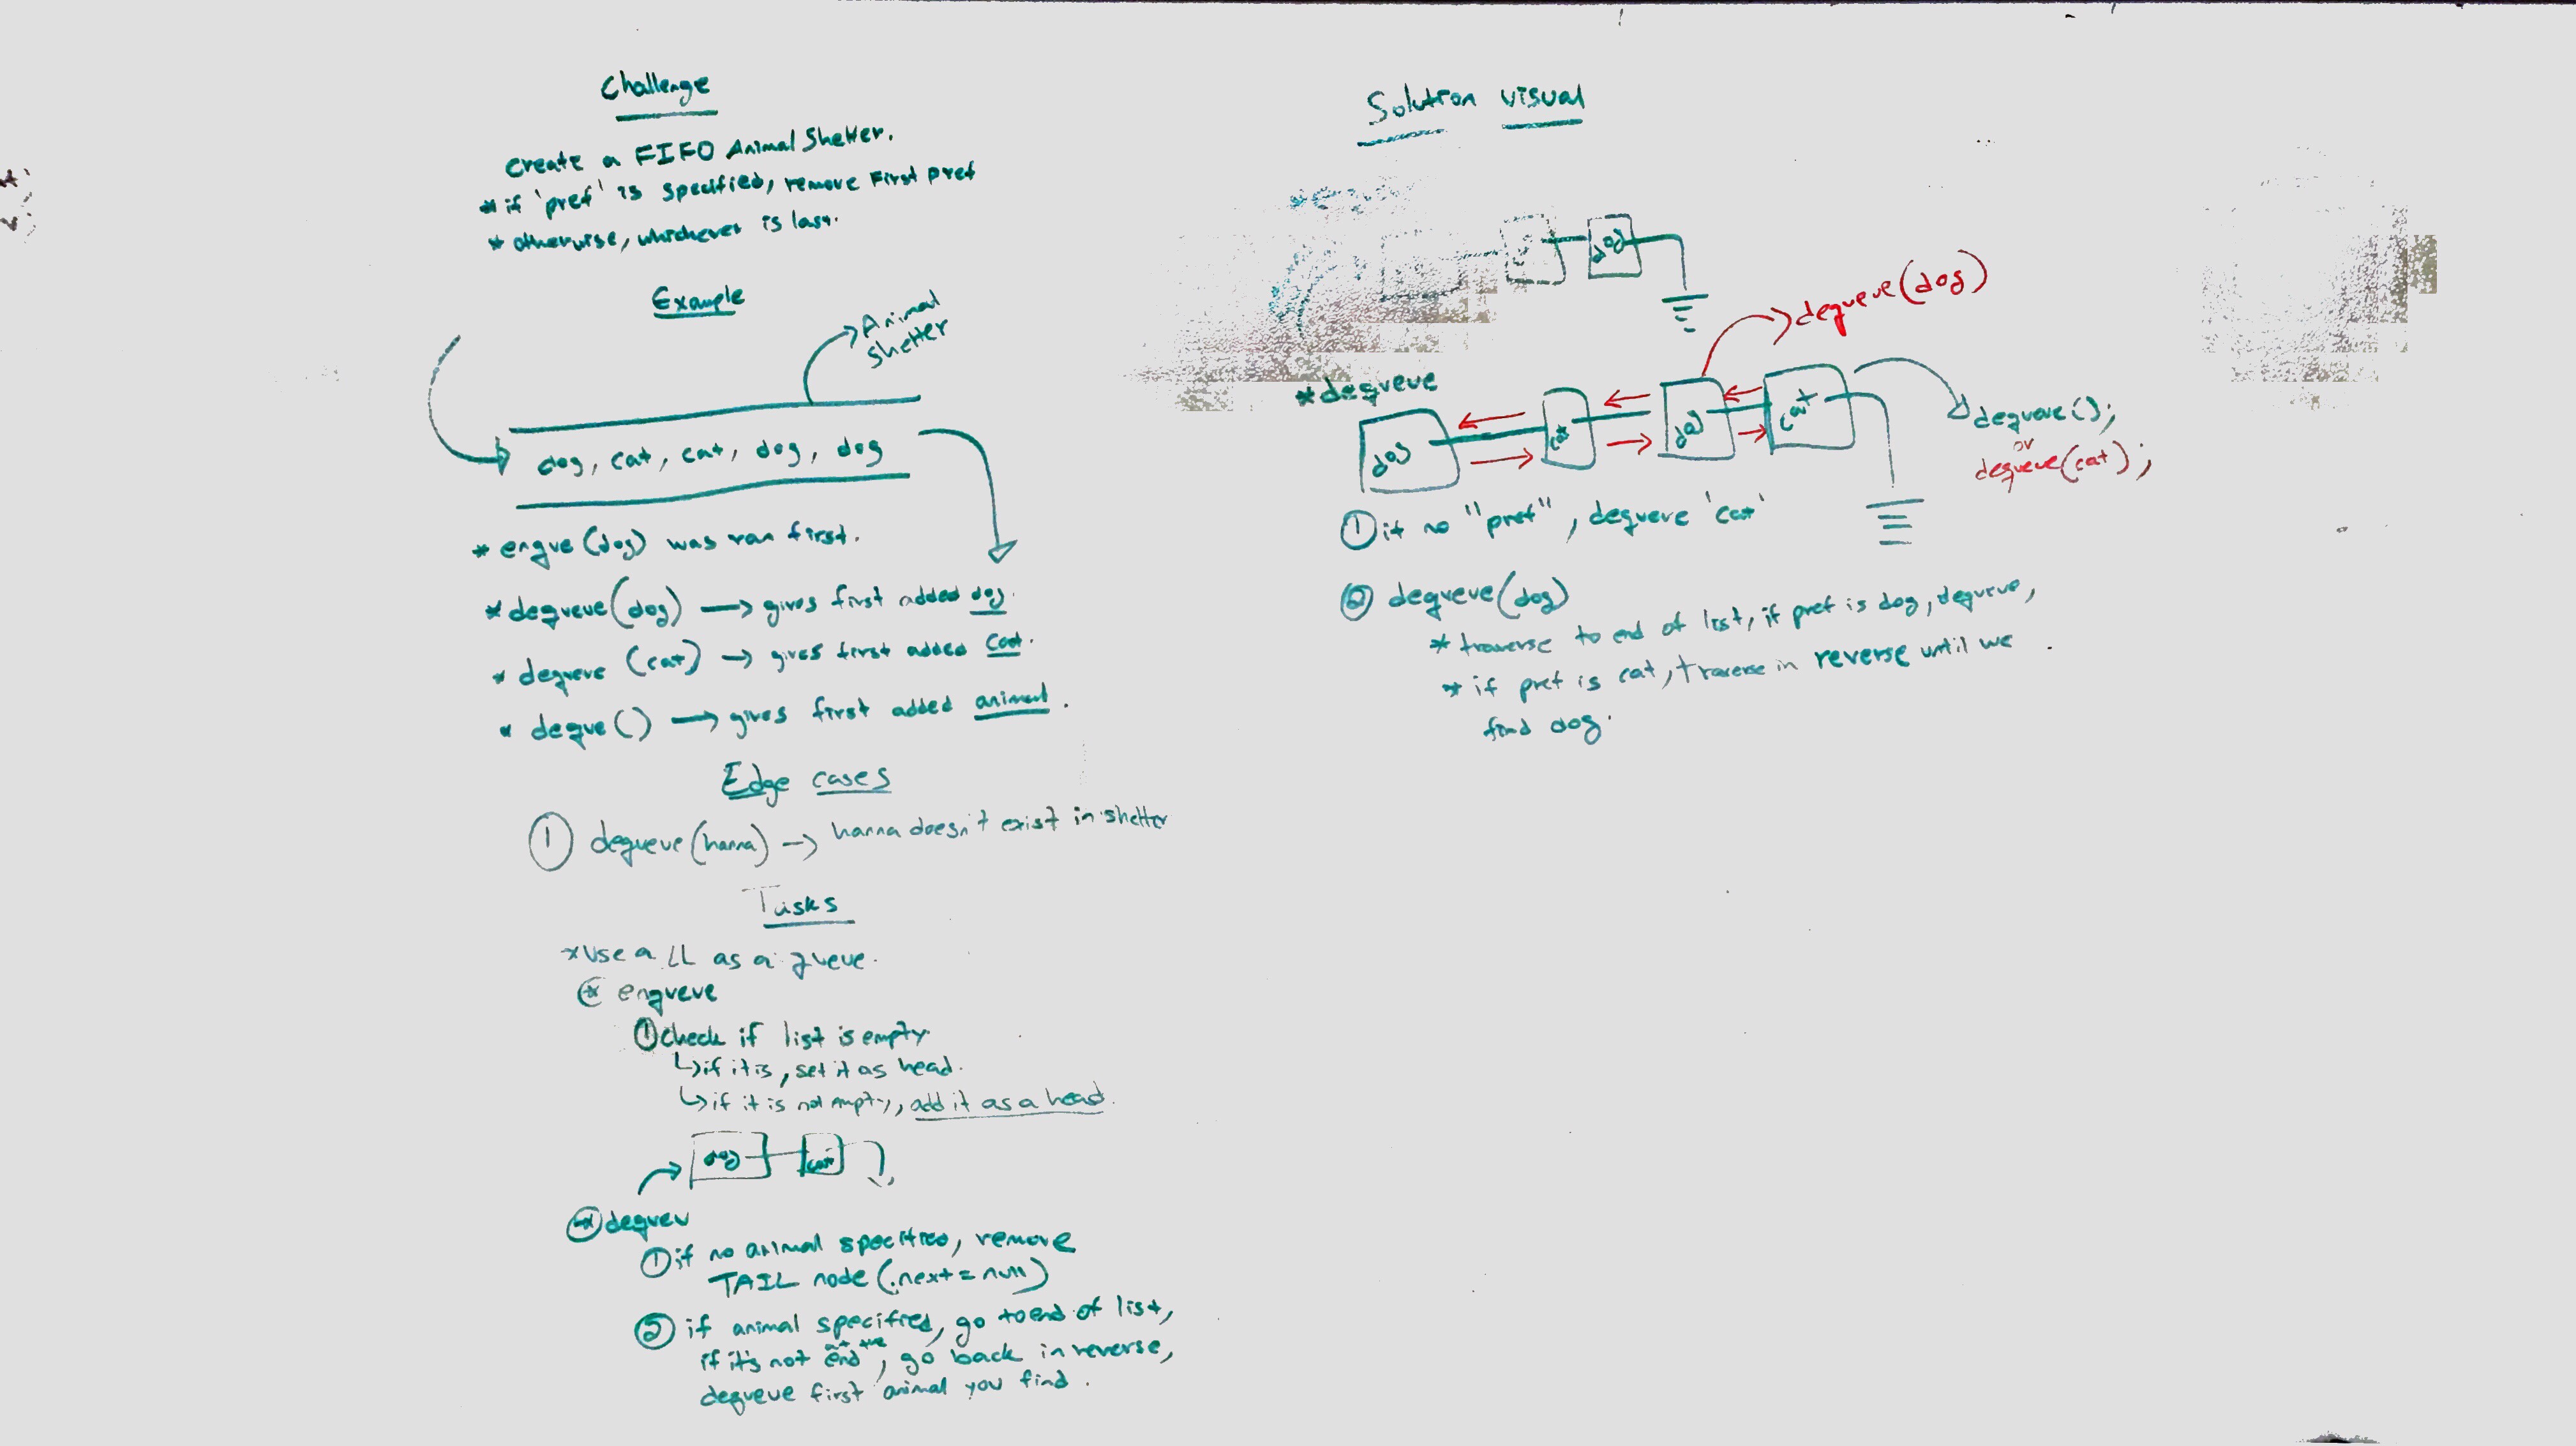 Challenge
create a FIFO Animal Shelter.
* if 'pref' is specified, remove First pref
* otherwise, whichever is last.
Example
Animal
Shelter
dog, cat, cat, dog, dog
* enque(dog) was ran first.
* dequeue(dog) → gives first added dog.
* dequeue (cat) → gives first added cat.
* deque() → gives first added animal.
Edge cases
① dequeue(hanna) → hanna doesn't exist in shelter
Tasks
* Use a LL as a queue.
* enqueue
① check if list is empty.
↳ if it is, set it as head.
↳ if it is not empty, add it as a head.
dog cat
* dequeu
① if no animal specified, remove
TAIL node (.next = null)
② if animal specified, go to end of list,
if it's not at the end, go back in reverse,
dequeue first animal you find.
Solution visual
dog
dequeue(dog)
* dequeue
dog cat dog cat
dequeue();
or
dequeue(cat);
① if no "pref", dequeue 'cat'
② dequeue(dog)
* traverse to end of list, if pref is dog, dequeue,
* if pref is cat, traverse in reverse until we
find dog.